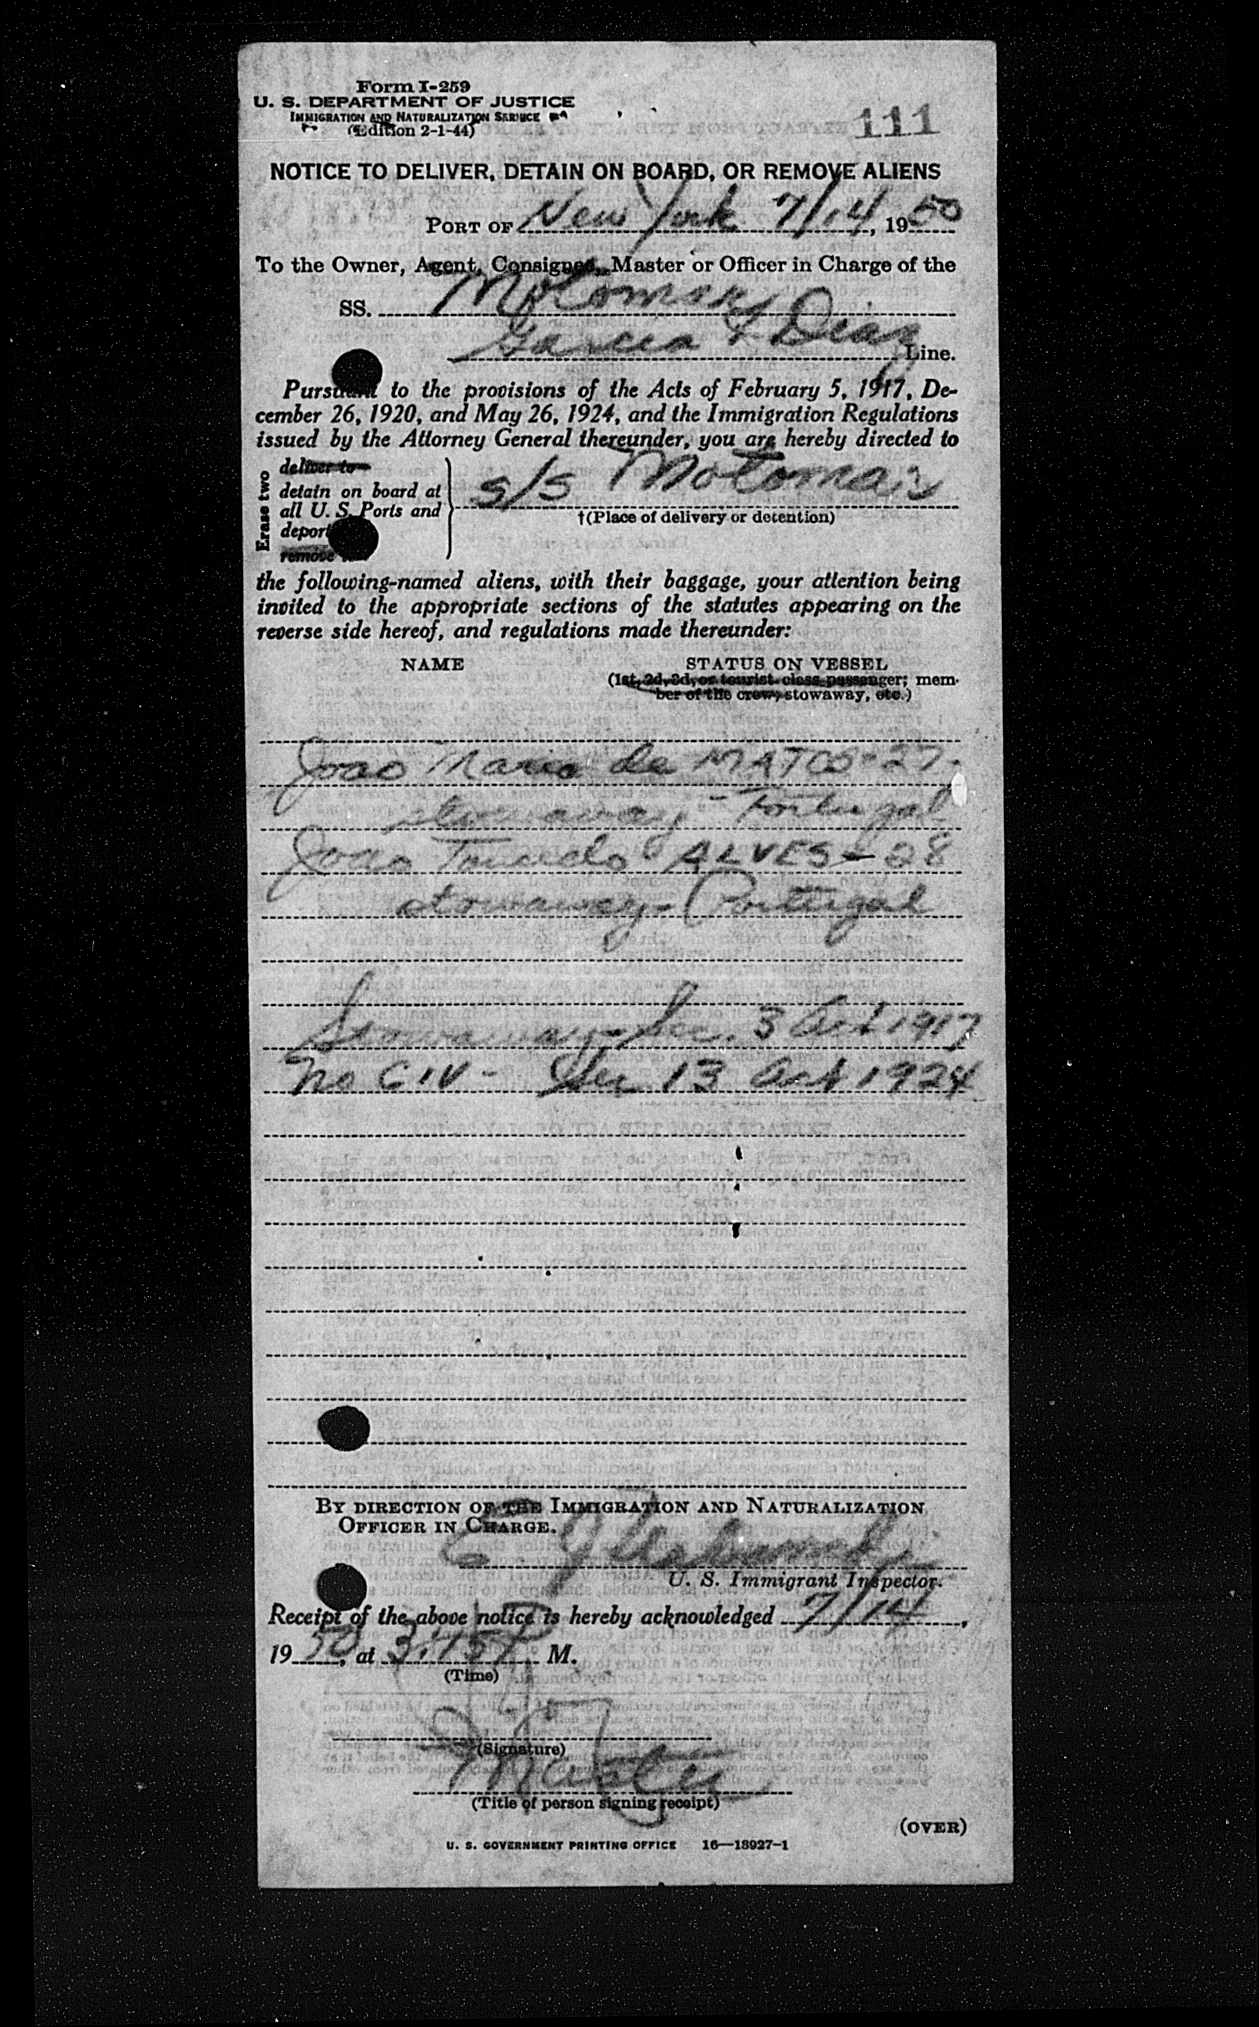 Form I-259
U. S. DEPARTMENT OF JUSTICE
IMMIGRATION AND NATURALIZATION SERVICE
(Edition 2-1-44)
111
NOTICE TO DELIVER, DETAIN ON BOARD, OR REMOVE ALIENS
PORT OF New York 7/14, 1950
To the Owner, Agent, Consignee, Master or Officer in Charge of the
SS. Motomar
Garcia & Diaz Line.
Pursuant to the provisions of the Acts of February 5, 1917, De-
cember 26, 1920, and May 26, 1924, and the Immigration Regulations
issued by the Attorney General thereunder, you are hereby directed to
Erase two
deliver to
detain on board at
all U. S. Ports and
deport
remove
s/s Motomar
†(Place of delivery or detention)
the following-named aliens, with their baggage, your attention being
invited to the appropriate sections of the statutes appearing on the
reverse side hereof, and regulations made thereunder:
NAME
STATUS ON VESSEL
(1st, 2d, 3d, or tourist class passenger; mem-
ber of the crew; stowaway, etc.)
Joao Maria de MATOS - 27 -
stowaway - Portugal
Joao ALVES - 28
stowaway - Portugal
Stowaway - Sec. 3 Act 1917
No CIV - Sec 13 Act 1924
BY DIRECTION OF THE IMMIGRATION AND NATURALIZATION
OFFICER IN CHARGE.
E J
U. S. Immigrant Inspector.
Receipt of the above notice is hereby acknowledged 7/14,
1950, at 3:45 P M.
(Time)
(Signature)
Master
(Title of person signing receipt)
(OVER)
U. S. GOVERNMENT PRINTING OFFICE 16—18927-1